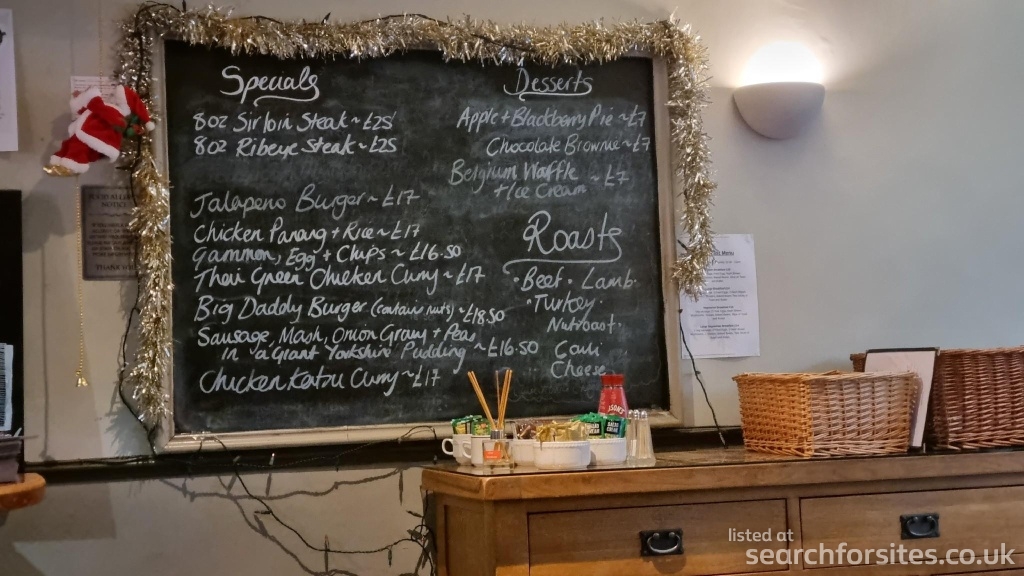 Specials
8oz Sirloin Steak ~ £25
8oz Ribeye Steak ~ £25
Jalapeno Burger ~ £17
Chicken Panang + Rice ~ £17
Gammon, Egg + Chips ~ £16.50
Thai Green Chicken Curry ~ £17
Big Daddy Burger (contains nuts) ~ £18.50
Sausage, Mash, Onion Gravy + Peas
in a Giant Yorkshire Pudding ~ £16.50
Chicken Katsu Curry ~ £17
Desserts
Apple + Blackberry Pie ~ £7
Chocolate Brownie ~ £7
Belgium Waffle ~ £7
+ Ice Cream
Roasts
• Beef • Lamb •
• Turkey •
Nutroast •
Cauli
Cheese
Menu
SALAD CREAM
listed at
searchforsites.co.uk